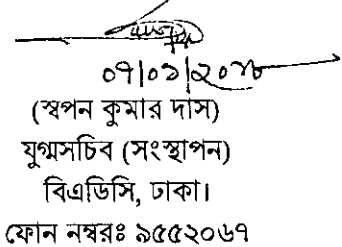 (স্বপন কুমার দাস)
যুগ্মসচিব (সংস্থাপন)
বিএডিসি, ঢাকা।
ফোন নম্বরঃ ৯৫৫২০৬৭